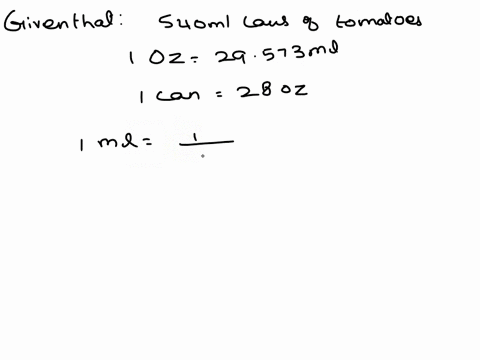 Giventhat: 540ml cans of tomatoes
1 Oz = 29.573ml
1 can = 28 oz
1 ml = 1